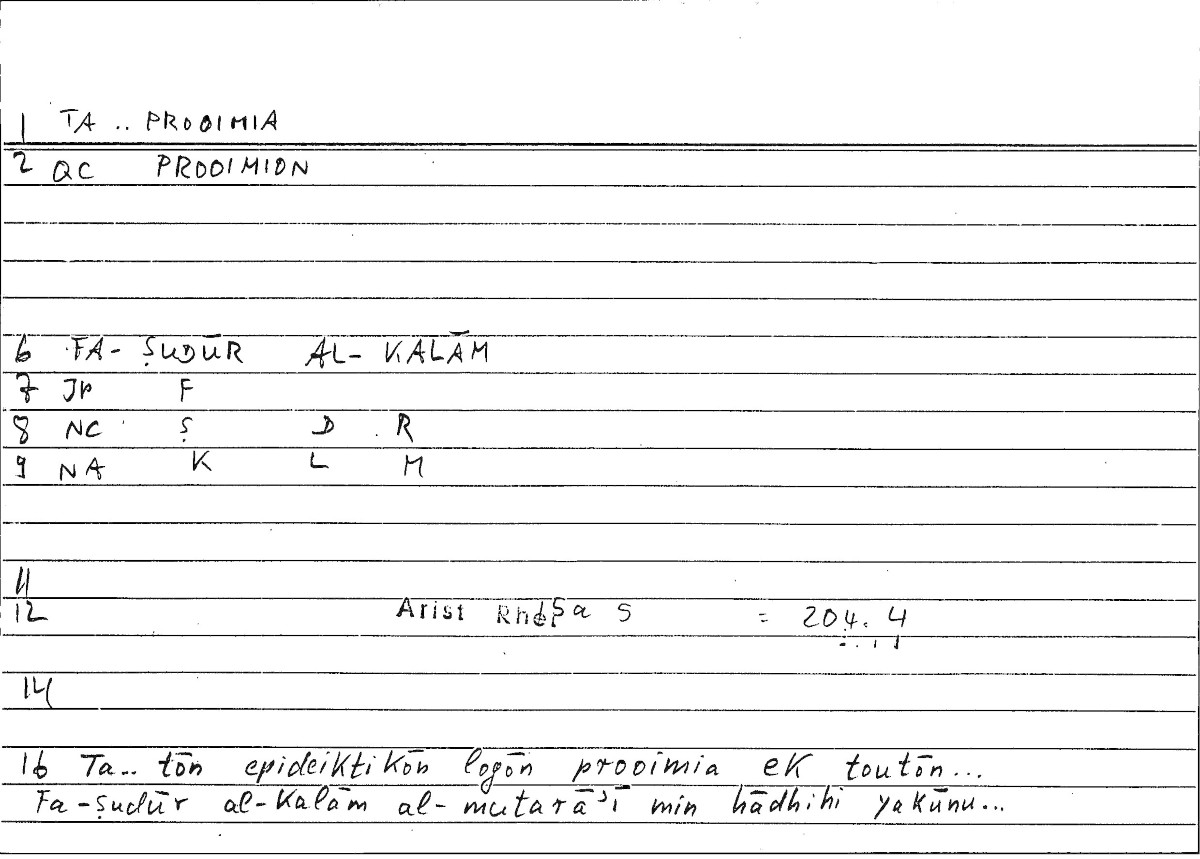 1 TA .. PROOIMIA
2 QC PROOIMION
6 FA- ṢUDŪR AL- KALĀM
7 Jp F
8 NC Ṣ D R
9 NA K L M
11
12 Arist = 204. 4
14
16 Ta.. tōn epideiktikōn logōn prooimia ek toutōn...
Fa-ṣudūr al-Kalām al-mutarā'ī min hādhihi yakūnu...